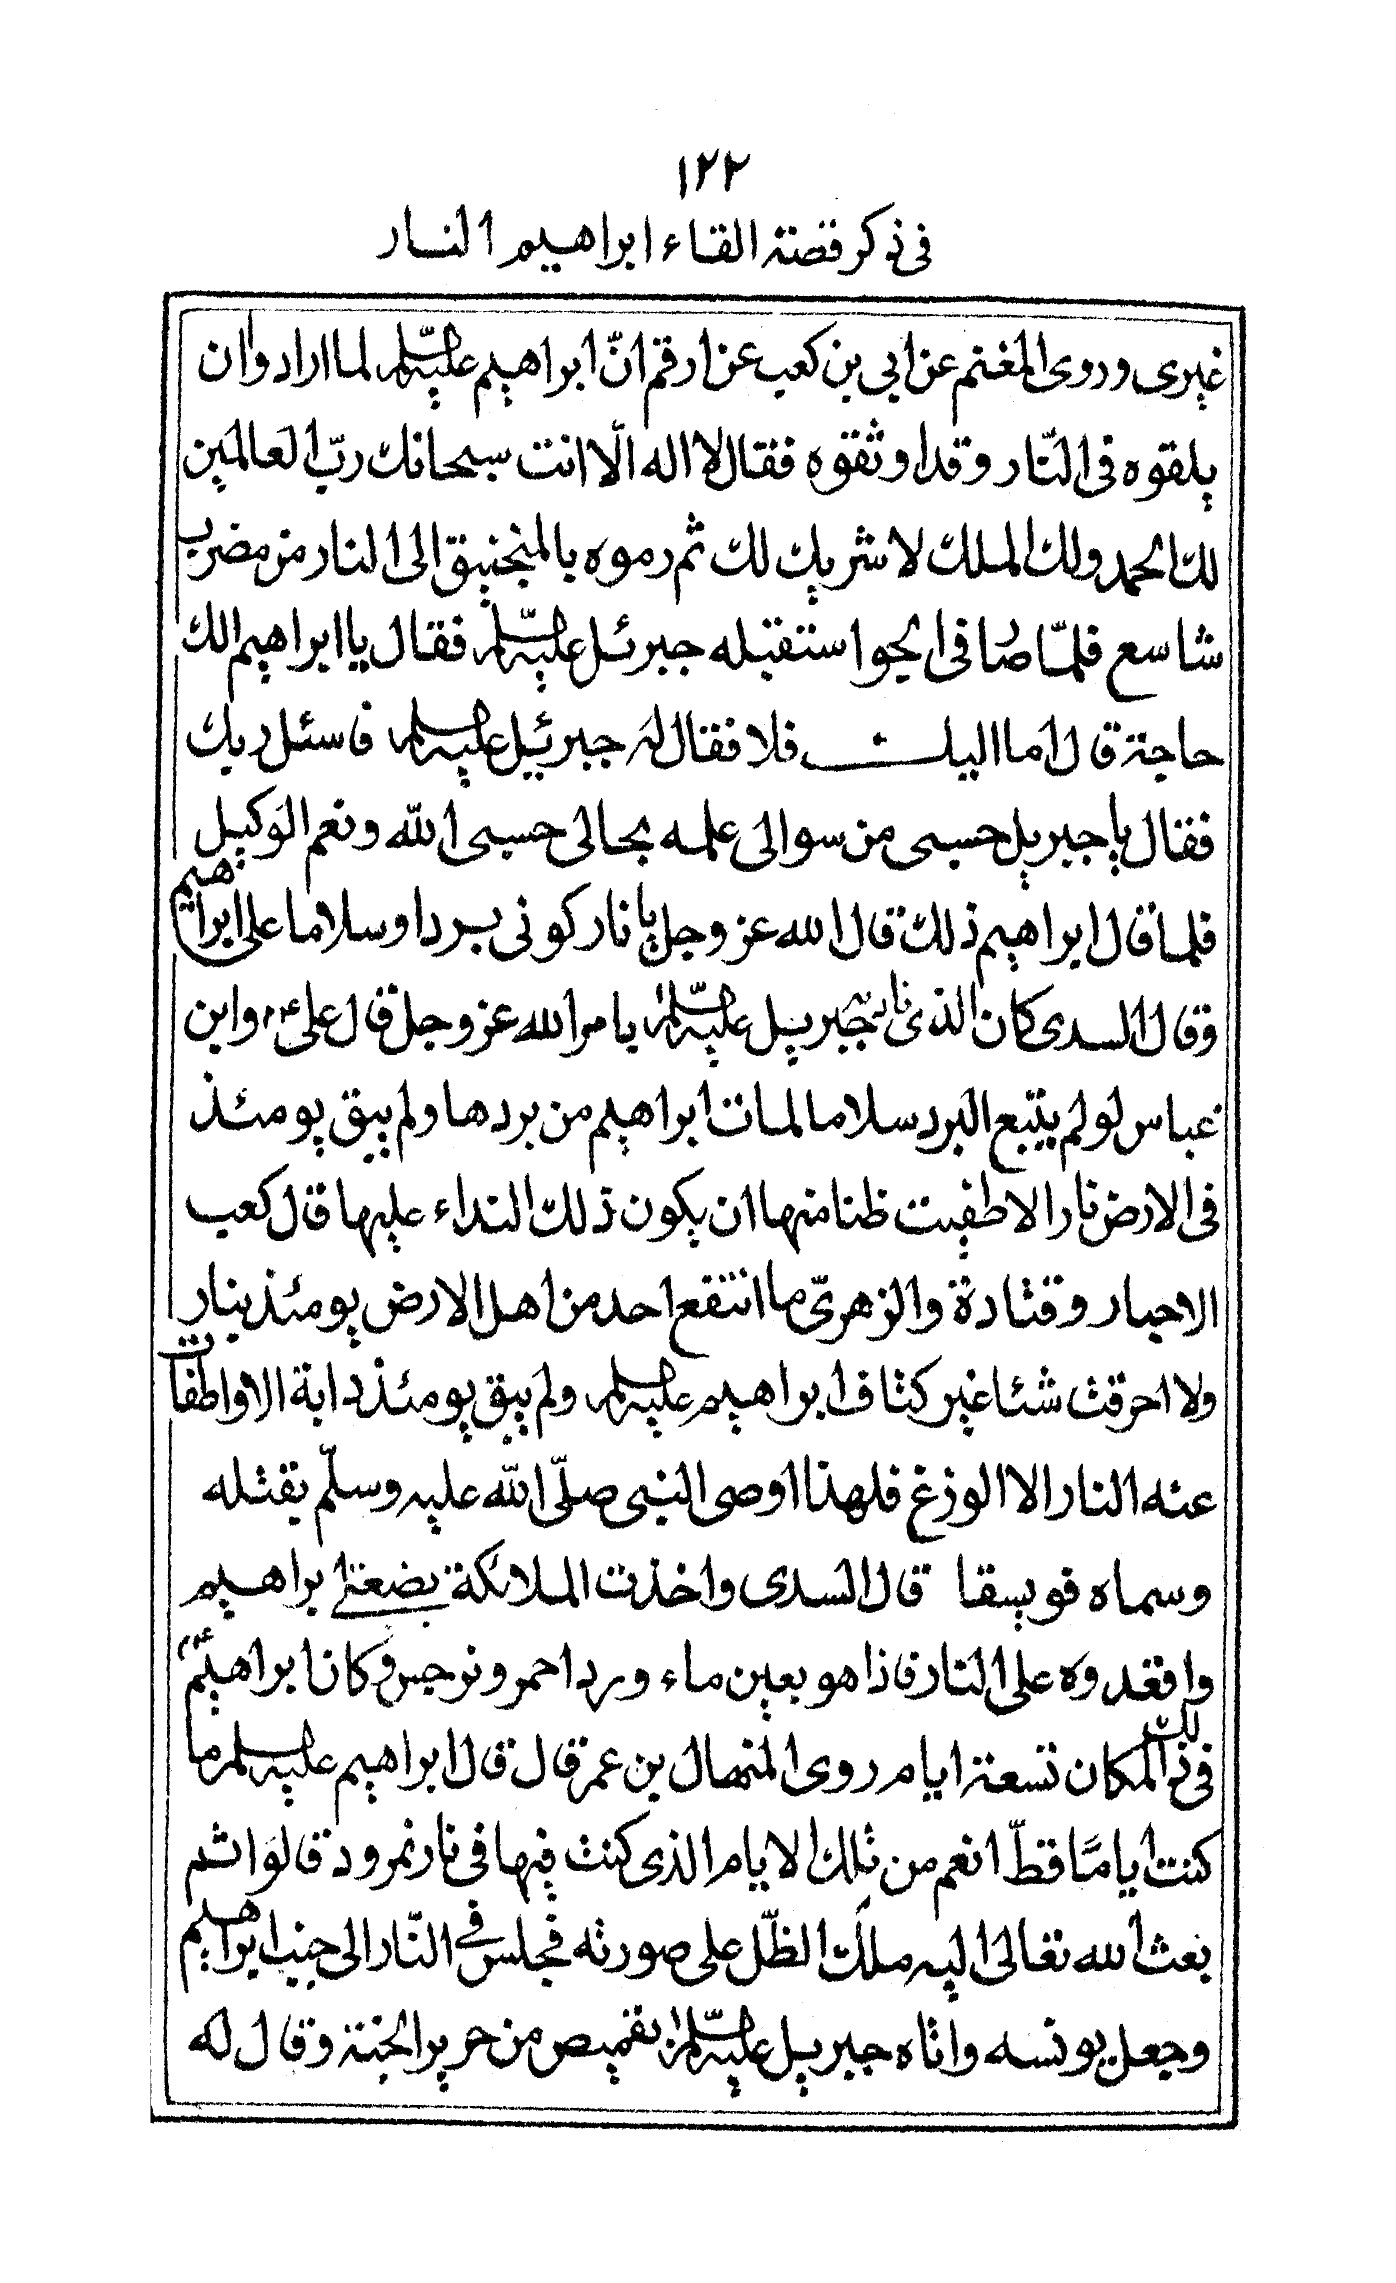 ١٢٢
فى ذكر قصة القاء ابراهيم النار
غيرى وروى المغتم عن ابي بن كعب عن ارقم انّ ابراهيم عليه السّلم لما ارادوا ان
يلقوه فى النّار وقد اوثقوه فقال لا اله الّا انت سبحانك ربّ العالمين
لك الحمد ولك الملك لا شريك لك ثم رموه بالمنجنيق الى النار من مضرب
شاسع فلمّا صُا فى الجو استقبله جبرئل عليه السّلم فقال يا ابراهيم الك
حاجة قال اما اليك فلا فقال له جبرئيل عليه السلم فاسئل ربك
فقال يا جبريل حسبى من سوالى علمه بحالى حسبى الله ونعم الوكيل
فلما قال ابراهيم ذلك قال الله عز وجل يا نار كونى بردا وسلاما على ابراهيم
وقال السدى كان الذى نادىه جبريل عليه السّلم بامر الله عز وجل قال على ع٢ وابن
عباس لو لم يتبع البرد سلاما لمات ابراهيم من بردها ولم يبق يومئذ
فى الارض نار الا طفيت ظنا منها ان يكون ذلك النداء عليها قال كعب
الاحبار وقتادة والزهرىّ ما انتفع احد من اهل الارض يومئذ بنار
ولا احرقت شئا غير كتاف ابراهيم عليه السلم ولم يبق يومئذ دابة الا واطفات
عنه النار الا الوزغ فلهذا اوصى النبى صلّى الله عليه وسلّم بقتله
وسماه فويسقا قال السدى واخذت الملائكة بضعتى ابراهيم
واقعدوه على النار فاذا هو بعين ماء وورد احمر ونرجس وكان ابراهيم ع٢
فى ذلك المكان تسعة ايام روى المنهال بن عمر قال قال ابراهيم عليه السلم ما
كنت اياماً قطّ انعم من تلك الايام الذى كنت فيها فى نار نمرود قالوا ثم
بعث الله تعالى اليه ملك الظّل على صورته فجلس فى النّار الى جنب ابراهيم
وجعل يونسه واتاه جبريل عليه السّلم بقميص من حرير الجنة وقال له